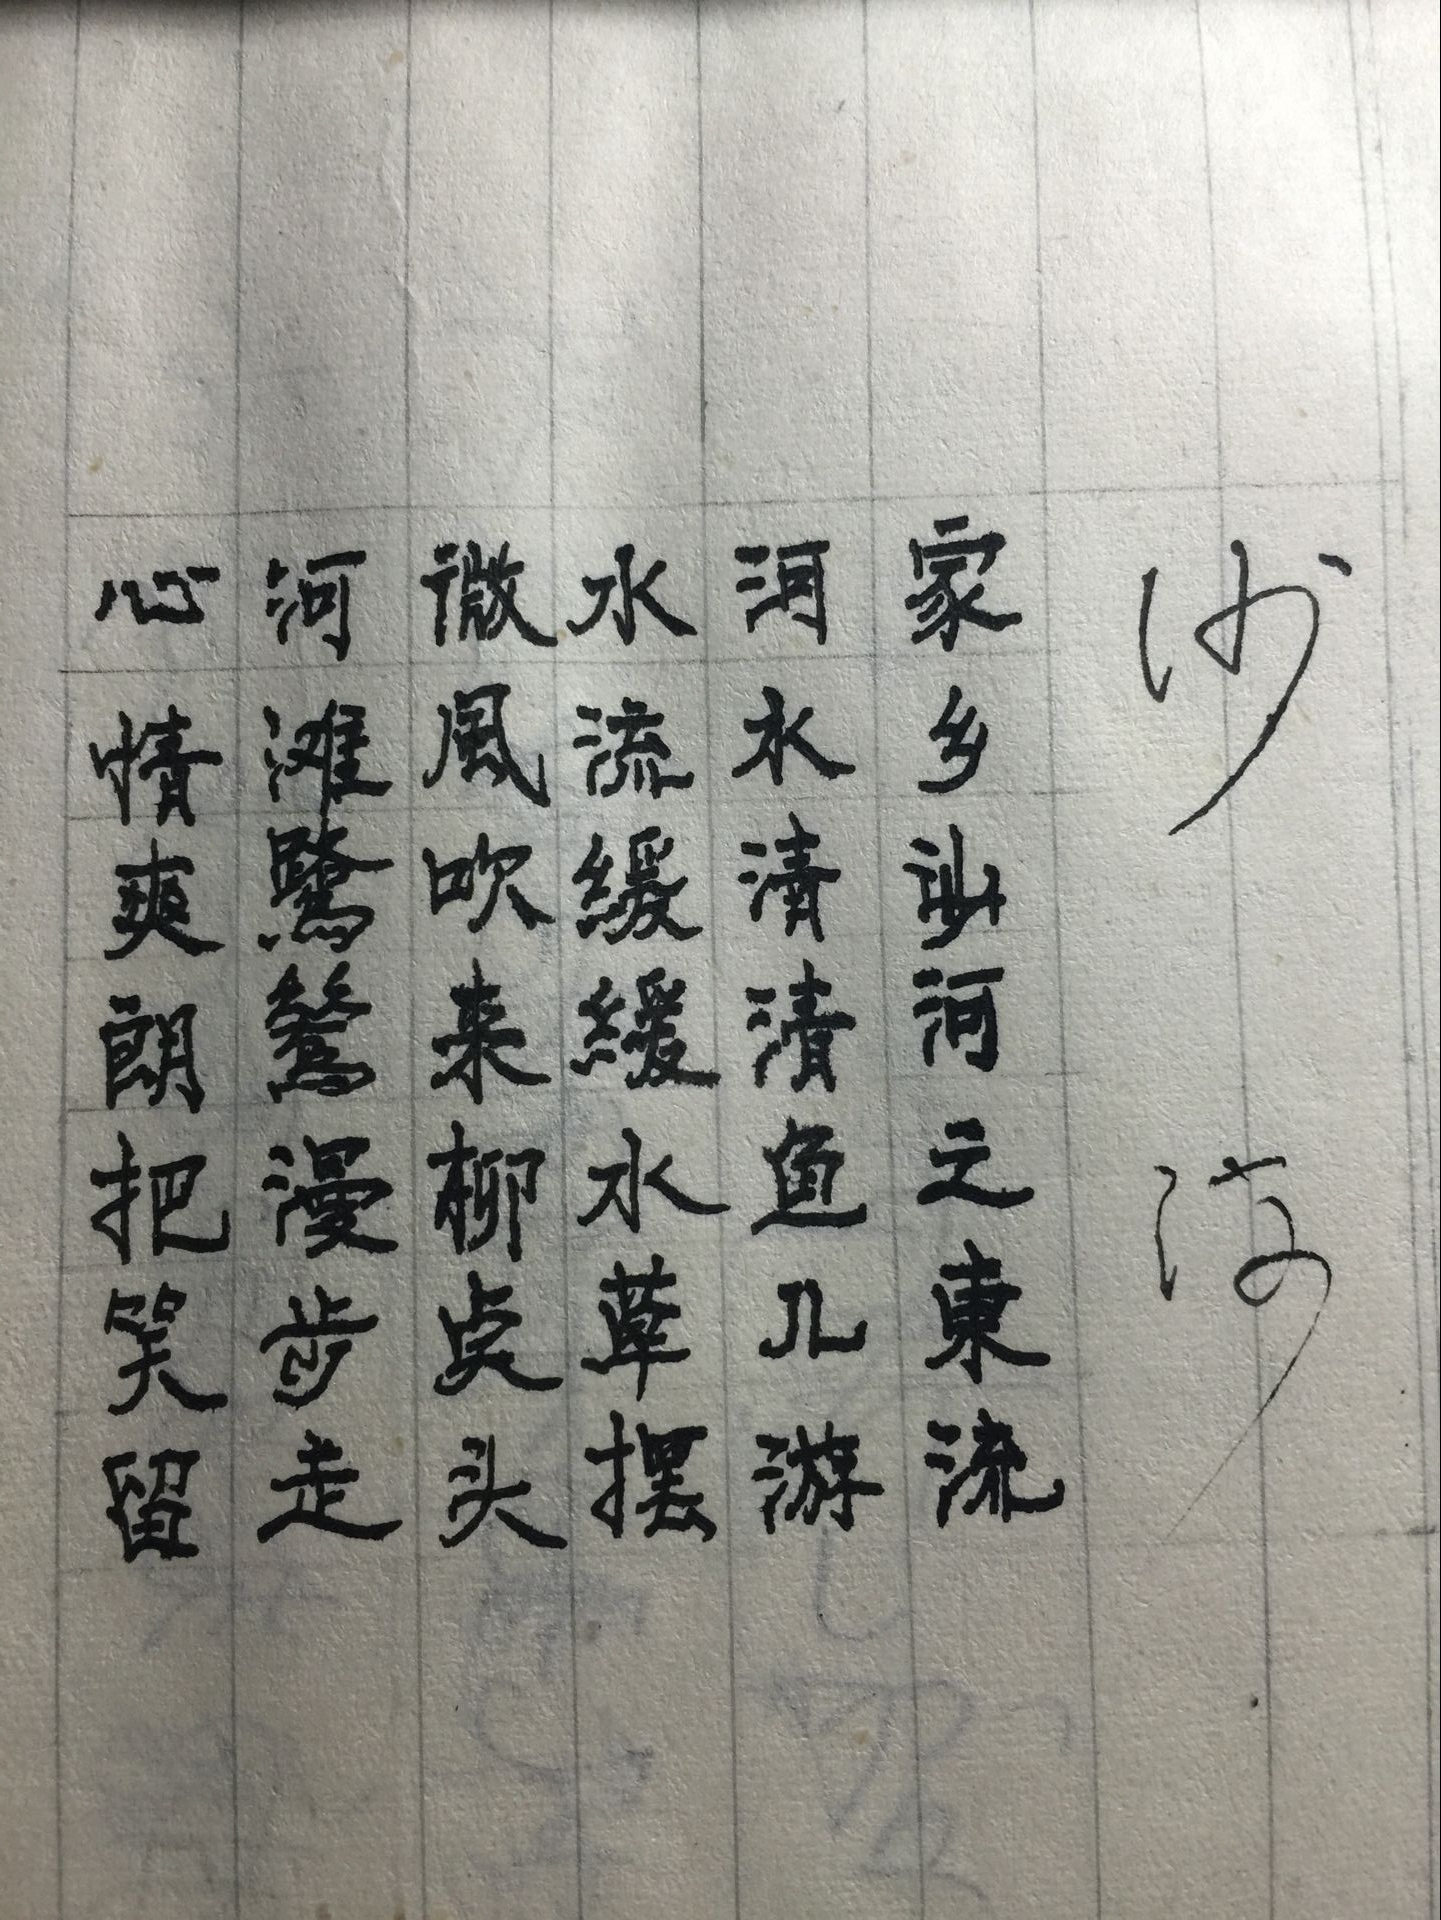 沙河
家乡沙河之東流
河水清清鱼儿游
水流緩緩水草摆
微風吹来柳奌头
河滩鷺鷥漫步走
心情爽朗把笑留